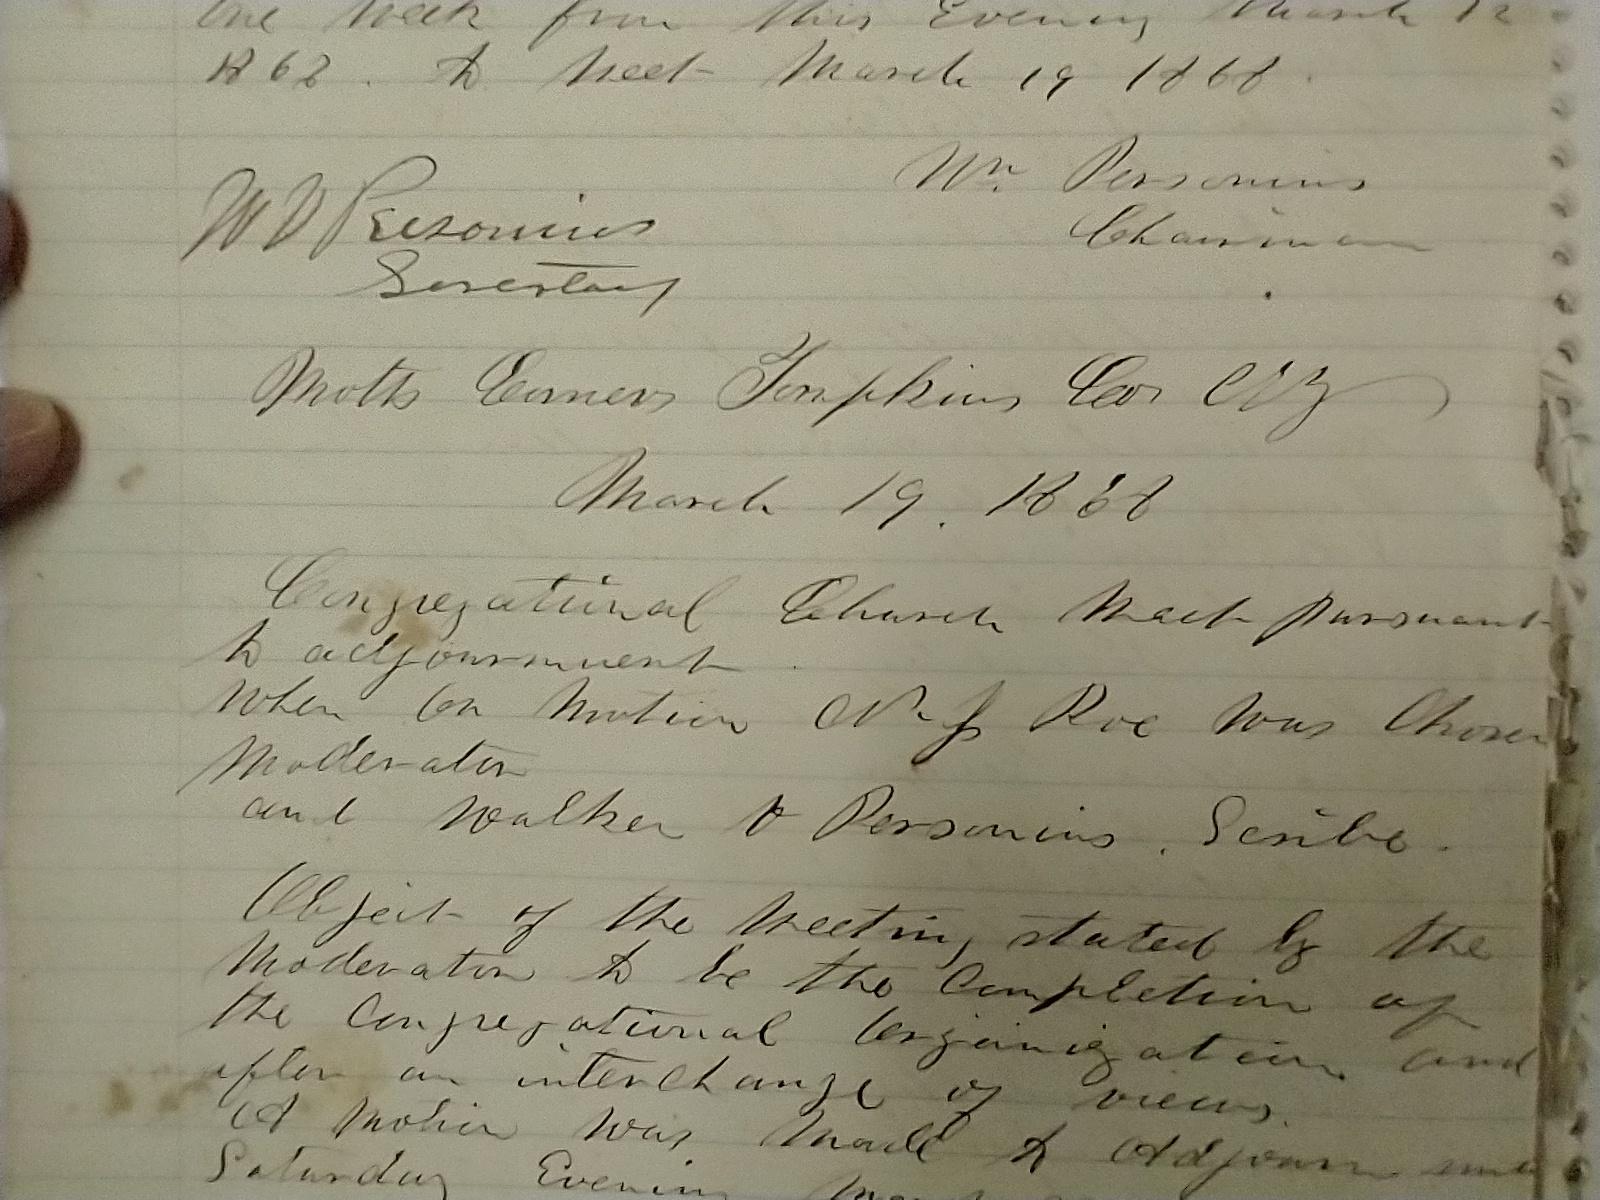 One Week from this Evening March 12
1868. to Meet March 19 1868.
Wm. Personius
Chairman
W V Personius
Secretary
Motts Corners Tompkins Co. NY
March 19. 1868
Congregational Church Meet pursuant
to adjournment.
When on Motion N. J. Roe was Chosen
Moderator
and Walker V Personius. Scribe.
Object of the Meeting stated by the
Moderator to be the Completion of
the Congregational Organization and
after an interchange of views.
A Motion was Made to Adjourn until
Saturday Evening